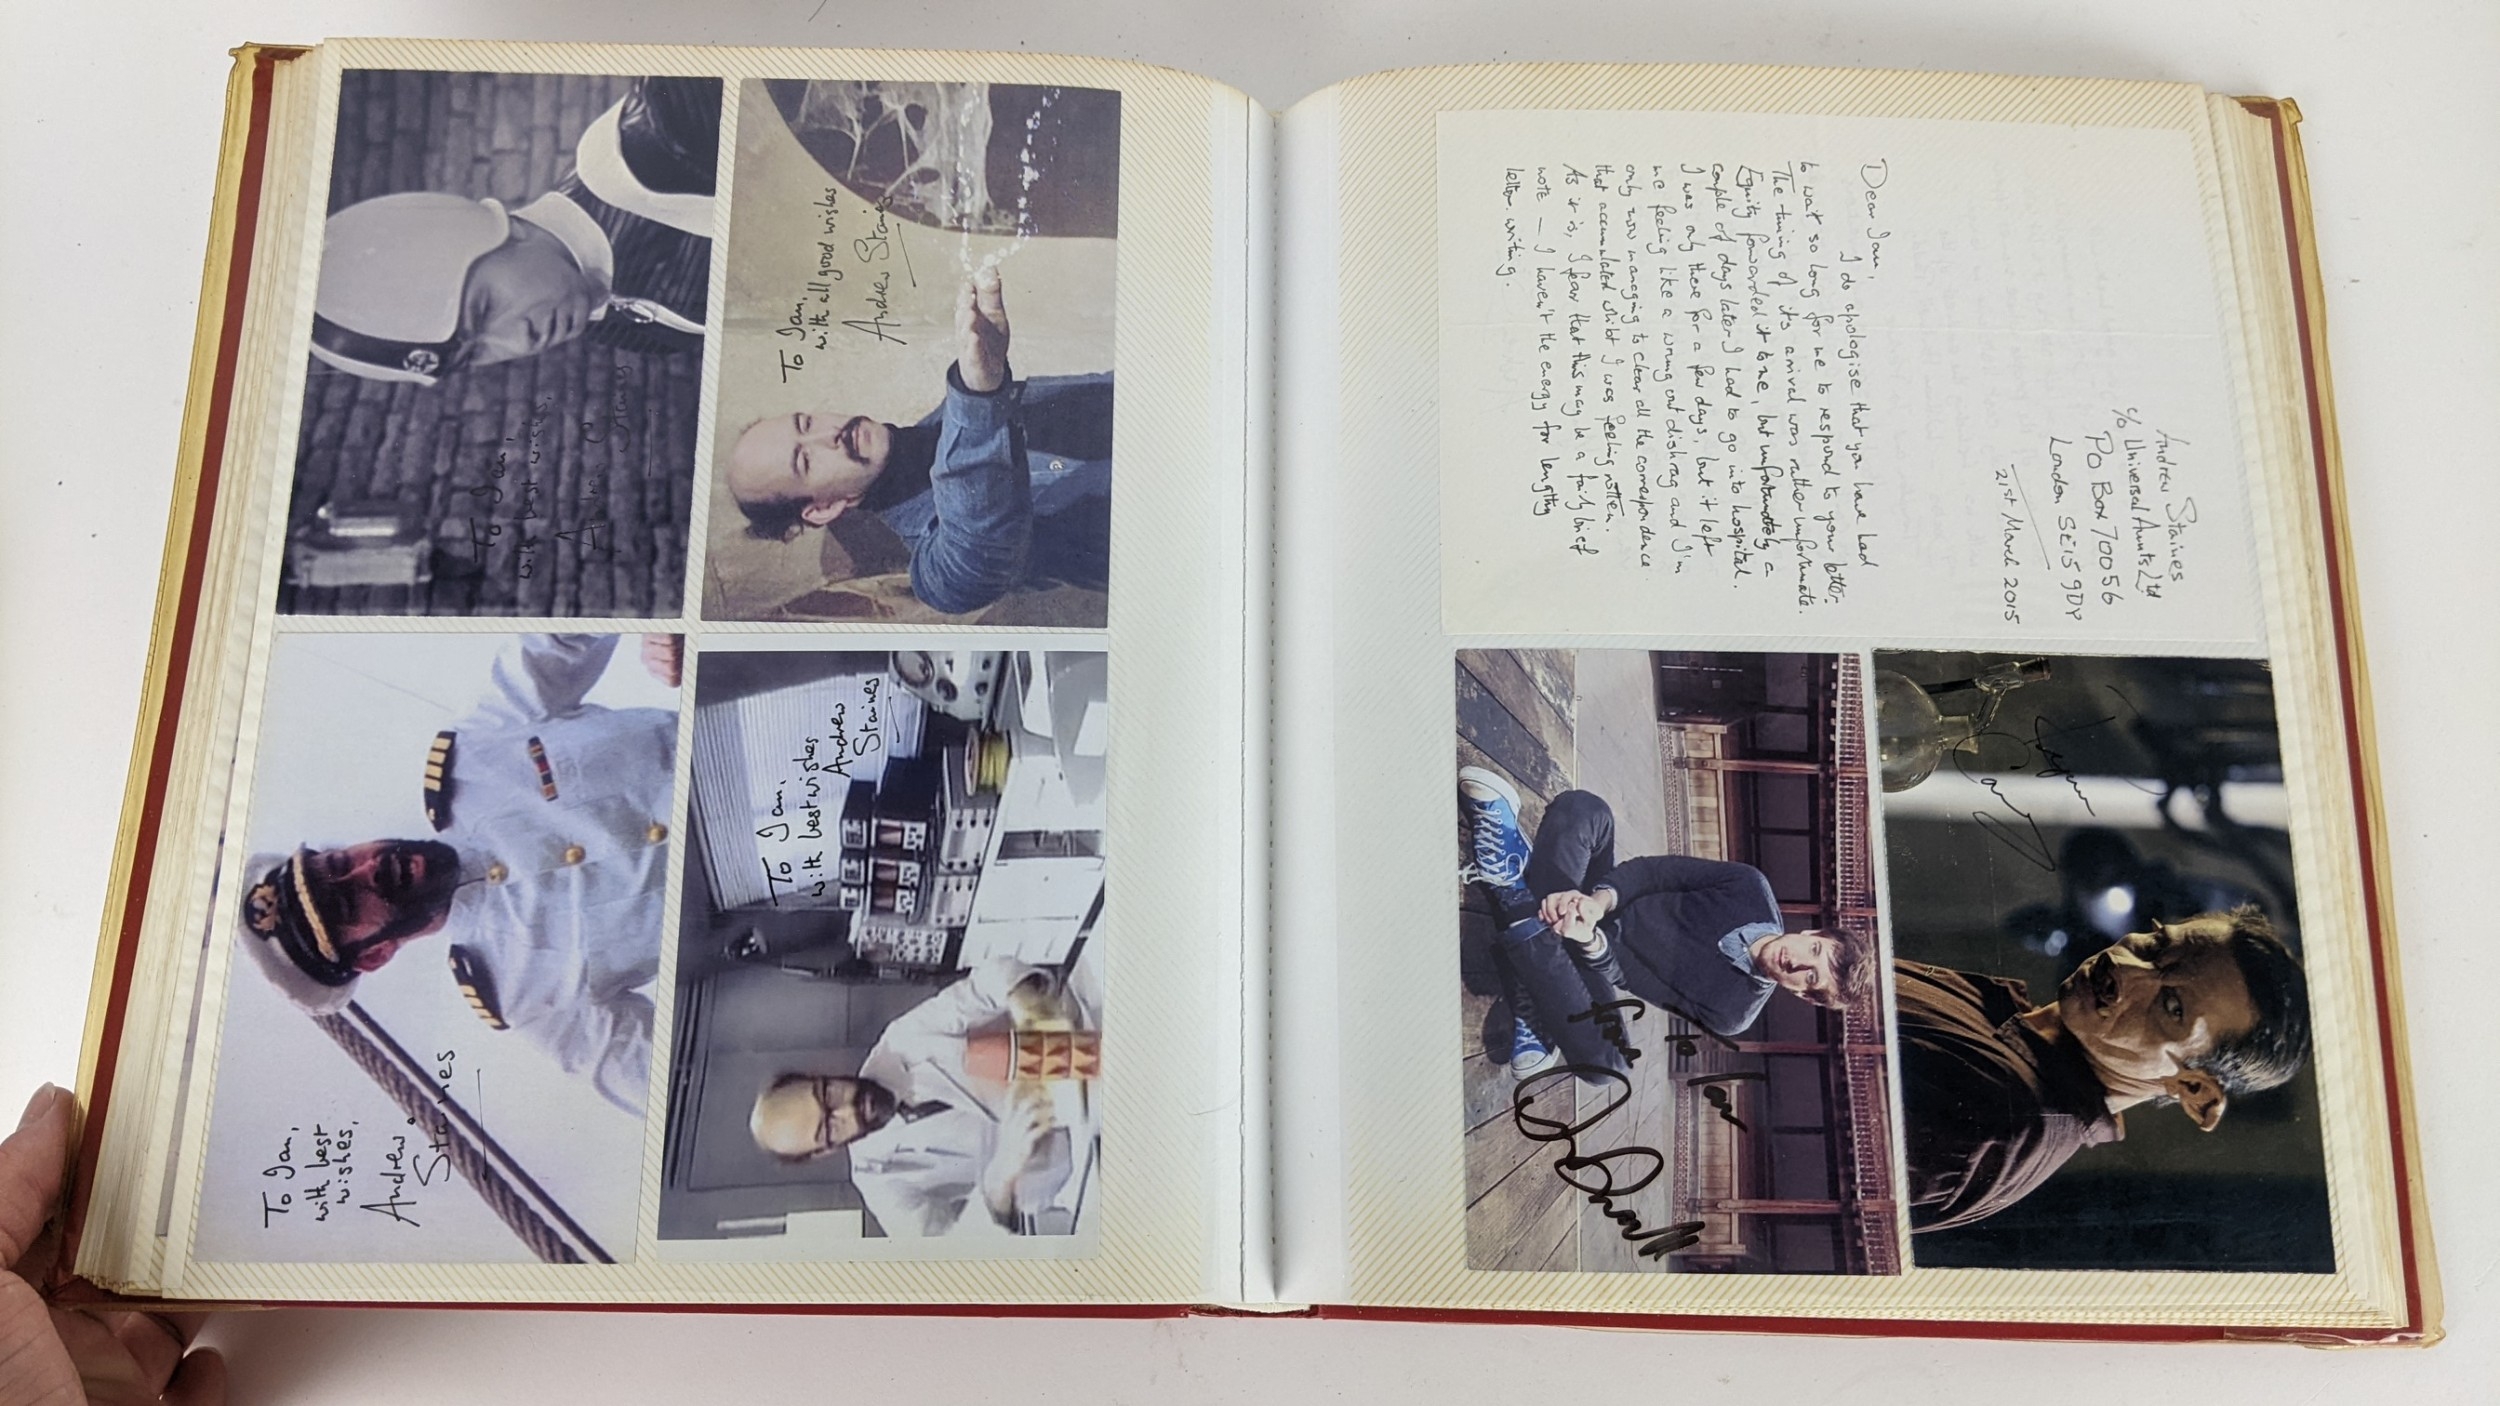 To Ian,
with best wishes,
Andrew
Staines
To Ian,
with all good wishes
Andrew Staines
To Ian,
with best
wishes,
Andrew
Staines
To Ian,
with best wishes
Andrew
Staines
Andrew Staines
c/o Universal Aunts Ltd
PO Box 70056
London SE15 9DP
21st March 2015
Dear Ian,
I do apologise that you have had
to wait so long for me to respond to your letter.
The timing of its arrival was rather unfortunate.
Equity forwarded it to me, but unfortunately a
couple of days later I had to go into hospital.
I was only there for a few days, but it left
me feeling like a wrung out dishrag and I'm
only now managing to clear all the correspondence
that accumulated whilst I was feeling rotten.
As it is, I fear that this may be a fairly brief
note — I haven't the energy for lengthy
letter-writing.
To Ian
from